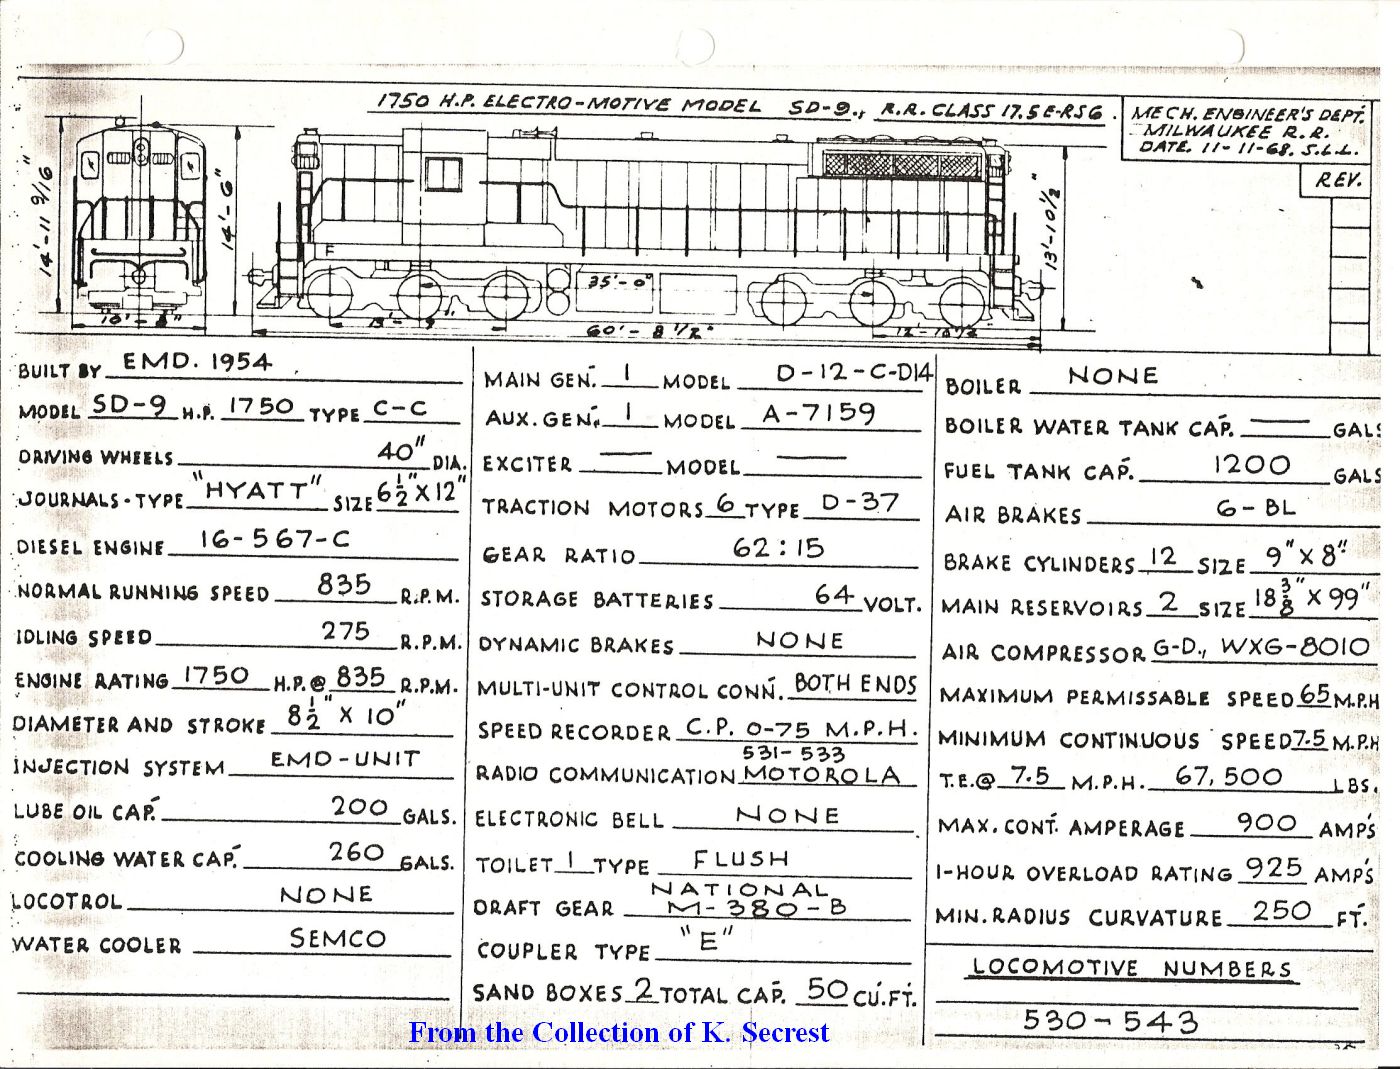 1750 H.P. ELECTRO-MOTIVE MODEL SD-9., R.R. CLASS 17.5 E-RS6.
MECH. ENGINEER'S DEPT.
MILWAUKEE R.R.
DATE. 11-11-68. S.L.L.
REV.
14'-11 9/16"
14'-6"
13'-10½"
F
35'-0"
10'-8"
60'-8 1/2"
BUILT BY EMD. 1954
MODEL SD-9 H.P. 1750 TYPE C-C
DRIVING WHEELS 40" DIA.
JOURNALS-TYPE "HYATT" SIZE 6½" X 12"
DIESEL ENGINE 16-567-C
NORMAL RUNNING SPEED 835 R.P.M.
IDLING SPEED 275 R.P.M.
ENGINE RATING 1750 H.P.@ 835 R.P.M.
DIAMETER AND STROKE 8½" X 10"
INJECTION SYSTEM EMD-UNIT
LUBE OIL CAP. 200 GALS.
COOLING WATER CAP. 260 GALS.
LOCOTROL NONE
WATER COOLER SEMCO
MAIN GEN. 1 MODEL D-12-C-D14
AUX. GEN. 1 MODEL A-7159
EXCITER — MODEL —
TRACTION MOTORS 6 TYPE D-37
GEAR RATIO 62:15
STORAGE BATTERIES 64 VOLT.
DYNAMIC BRAKES NONE
MULTI-UNIT CONTROL CONN. BOTH ENDS
SPEED RECORDER C.P. 0-75 M.P.H.
531-533
RADIO COMMUNICATION MOTOROLA
ELECTRONIC BELL NONE
TOILET 1 TYPE FLUSH
NATIONAL
DRAFT GEAR M-380-B
COUPLER TYPE "E"
SAND BOXES 2 TOTAL CAP. 50 CU.FT.
BOILER NONE
BOILER WATER TANK CAP. — GALS
FUEL TANK CAP. 1200 GALS
AIR BRAKES 6-BL
BRAKE CYLINDERS 12 SIZE 9" X 8"
MAIN RESERVOIRS 2 SIZE 18 3/8" X 99"
AIR COMPRESSOR G-D., WXG-8010
MAXIMUM PERMISSABLE SPEED 65 M.P.H
MINIMUM CONTINUOUS SPEED 7.5 M.P.H
T.E.@ 7.5 M.P.H. 67,500 LBS.
MAX. CONT. AMPERAGE 900 AMP'S
1-HOUR OVERLOAD RATING 925 AMP'S
MIN. RADIUS CURVATURE 250 FT.
LOCOMOTIVE NUMBERS
530-543
From the Collection of K. Secrest